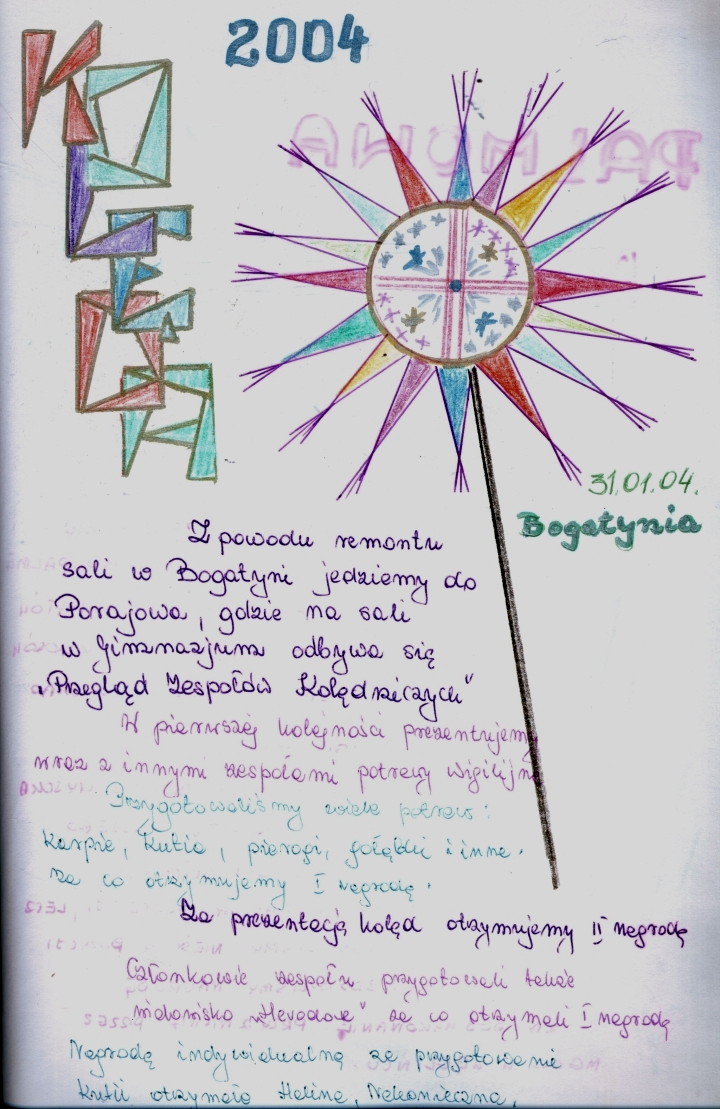 2004
KOLĘDA
31.01.04.
Bogatynia
Z powodu remontu
sali w Bogatyni jedziemy do
Porajowa, gdzie na sali
w Gimnazjum odbywa się
„Przegląd Zespołów Kolędniczych"
W pierwszej kolejności prezentujemy
wraz z innymi zespołami potrawy wigilijne
Przygotowaliśmy wiele potraw:
Karpie, Kutia, pierogi, gołąbki i inne.
za co otrzymujemy I nagrodę.
Za prezentację kolęd otrzymujemy II nagrodę
Członkowie zespołu przygotowali także
widowisko „Herodowe" za co otrzymali I nagrodę
Nagrodę indywidualną za przygotowanie
Kutii otrzymała Halina Nakonieczna.